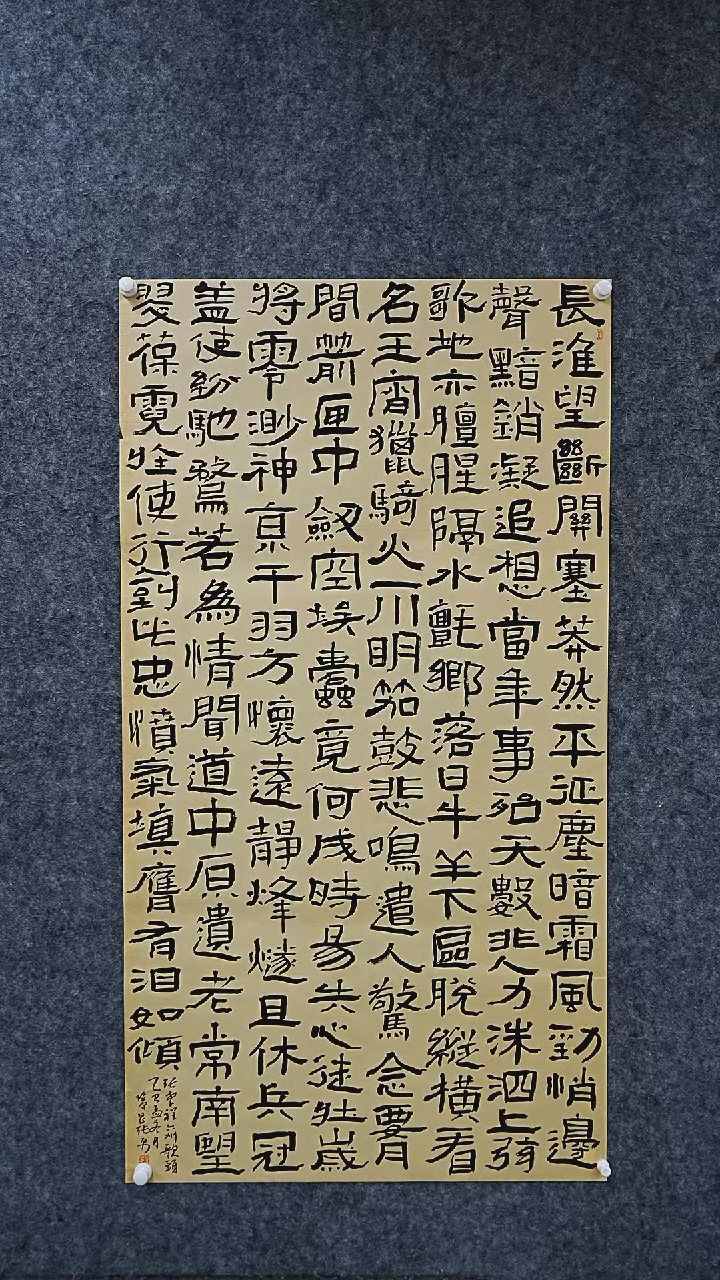 長淮望斷關塞莽然平征塵暗霜風勁悄邊
聲黯銷凝追想當年事殆天數非人力洙泗上弦
歌地亦膻腥隔水氈鄉落日牛羊下區脫縱橫看
名王宵獵騎火一川明笳鼓悲鳴遣人驚念腰
間箭匣中劒空埃蠹竟何成時易失心徒壯歲
將零渺神京干羽方懷遠靜烽燧且休兵冠
蓋使紛馳騖若為情聞道中原遺老常南望
翠葆霓旌使行人到此忠憤氣填膺有泪如傾
張孝祥六州歌頭
乙巳孟冬月